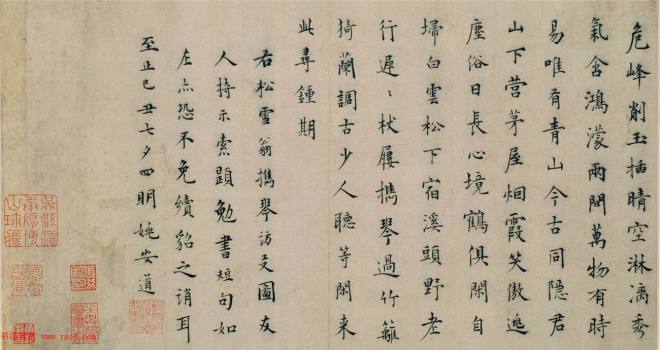 危峰削玉插晴空淋漓秀
氣含鴻濛兩間萬物有時
易唯有青山今古同隱君
山下营茅屋烟霞笑傲逃
塵俗日長心境鶴俱閑自
埽白雲松下宿溪頭野老
行遲〻杖屨攜琴過竹籬
猗蘭調古少人聽等閑来
此尋鍾期
右松雪翁攜琴訪友圖友
人持示索題勉書短句如
左点恐不免續貂之誚耳
至正己丑七夕四明姚安道